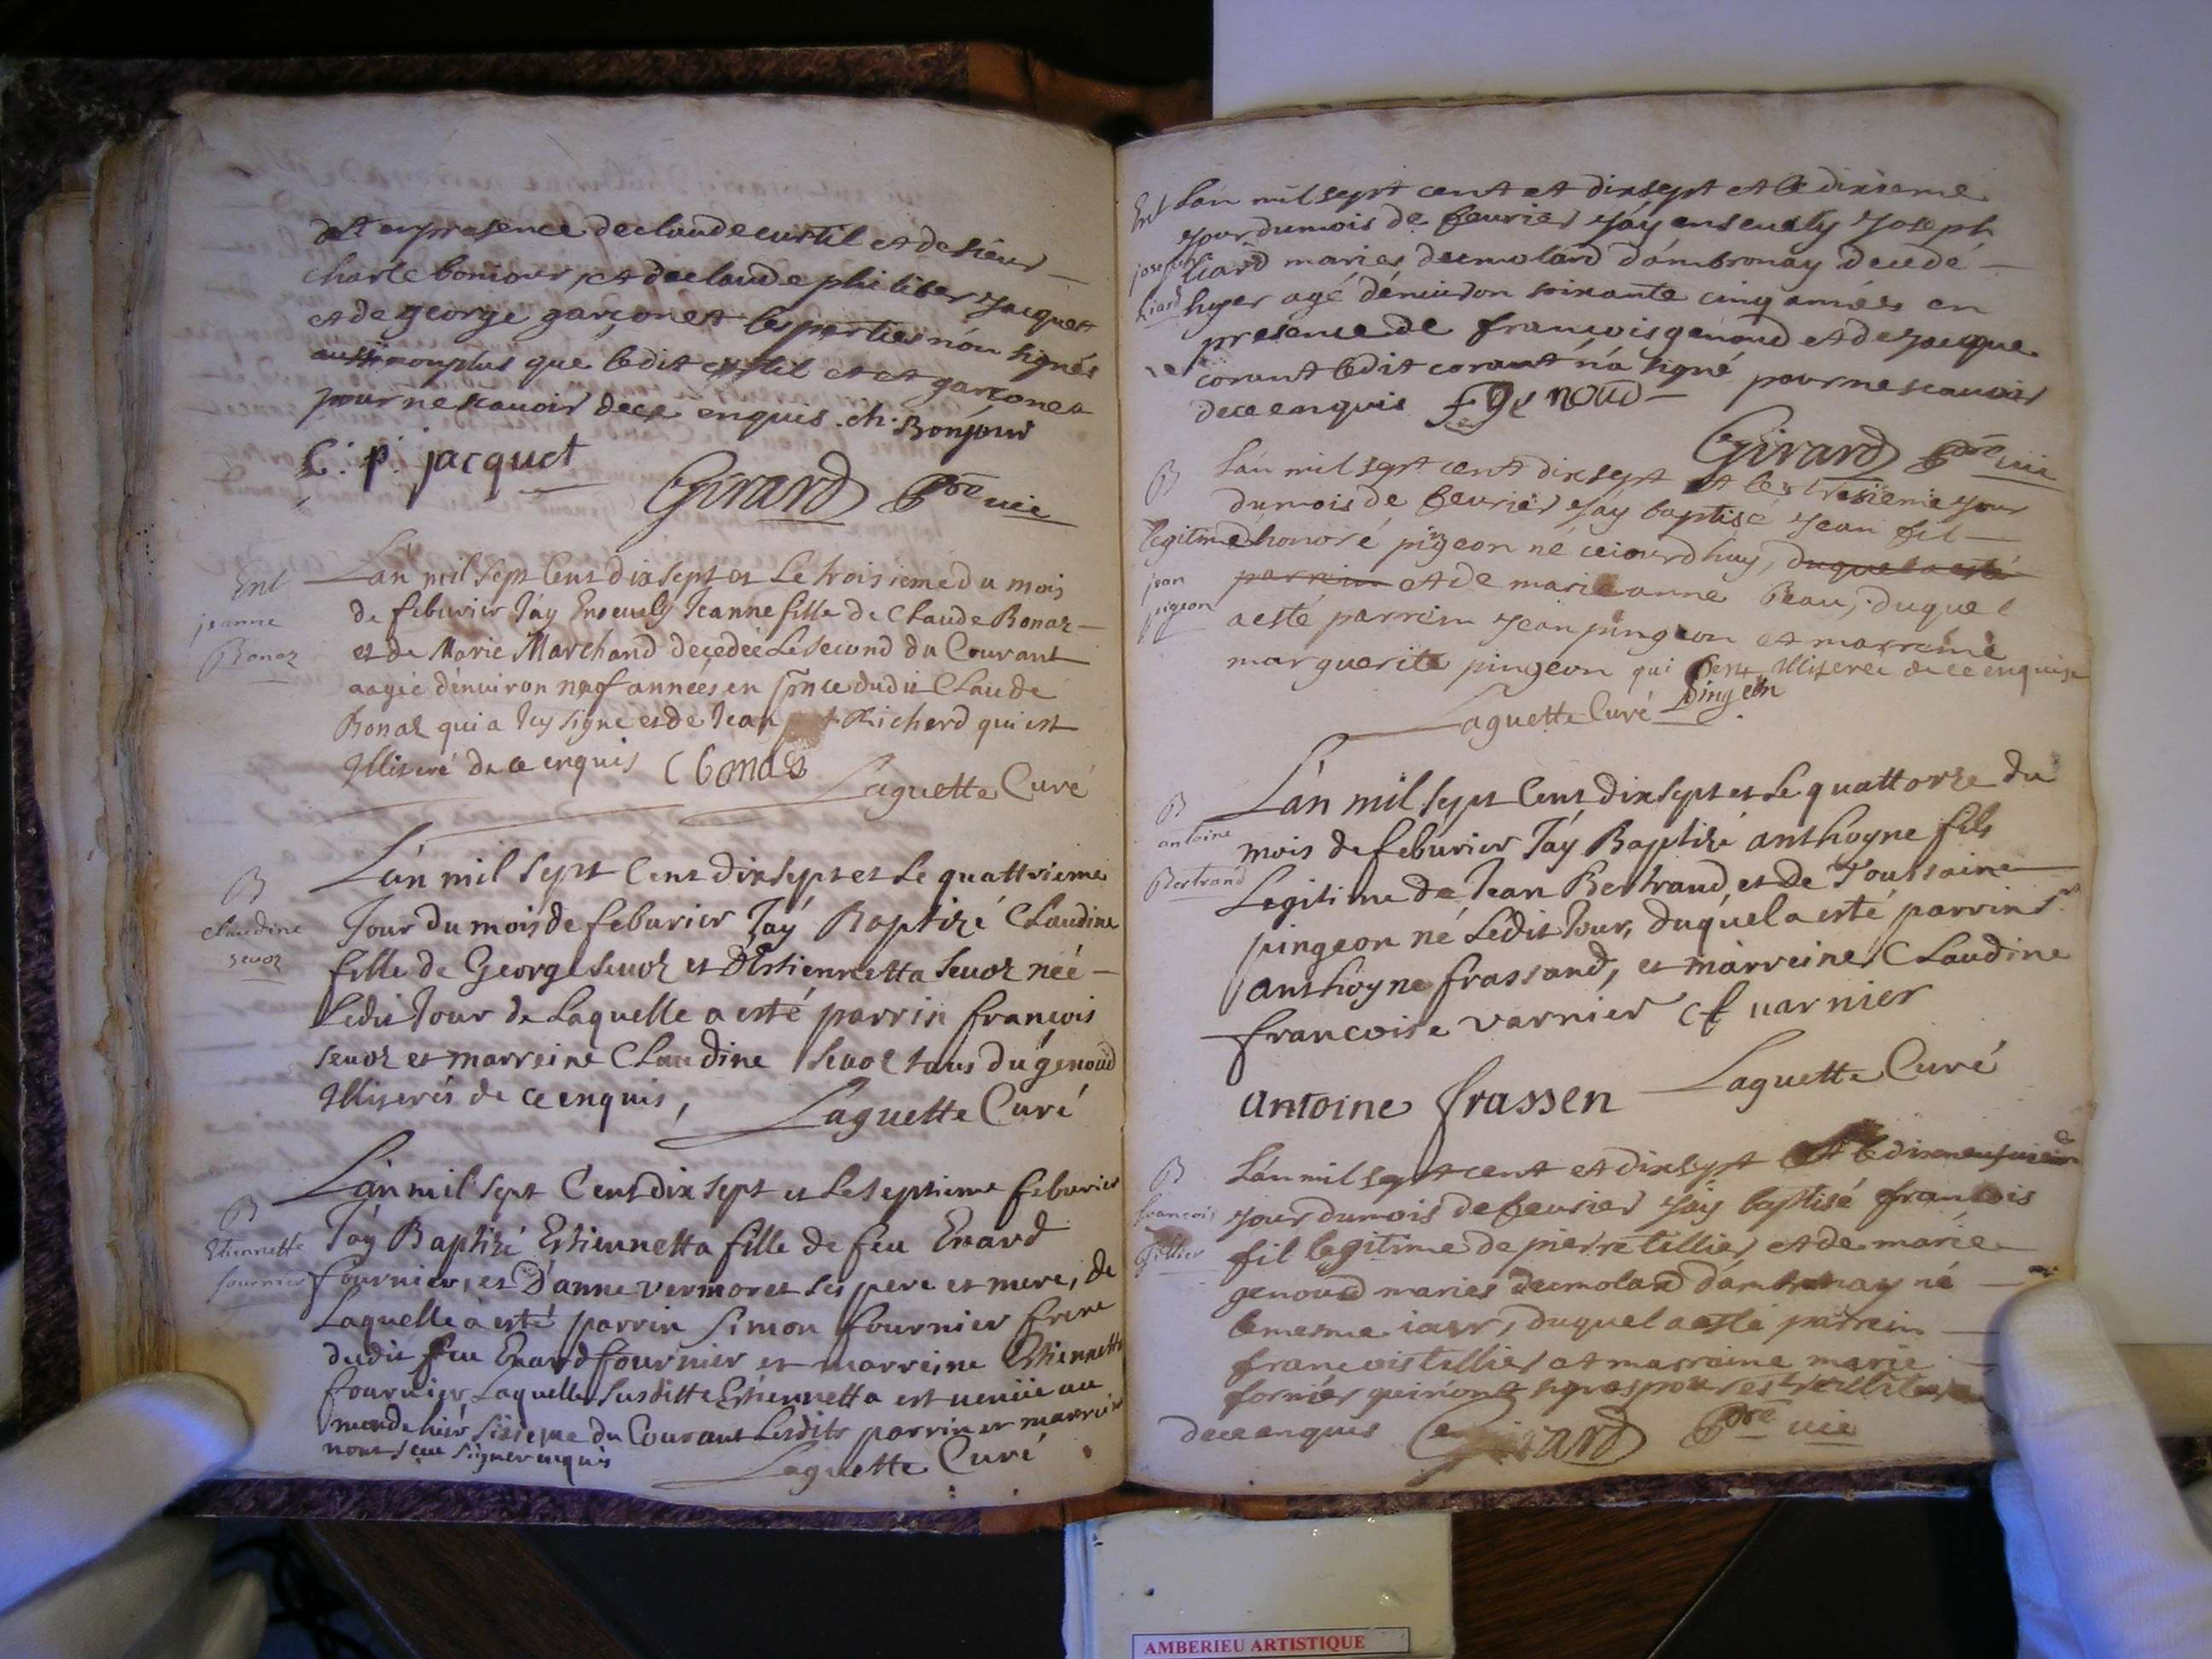 en presence de claude curtil et de sieur
charle bonjour, et de claude philiber jacquet
et de george garçonet les parties n'on signés
aussi nonplus que ledit curtil et et garconet
pour ne scauoir dece enquis . ch. Bonjour
C. p. jacquet
Girard pbre vic
Ent
jeanne
Bonaz
Lan mil sept Cent dix sept et Le troisieme du mois
de feburier J'ay Enseuely Jeanne fille de Claude Bonaz
et de Marie Marchand deçedée Le second du Courant
aagée d'enuiron neuf années en pnce dudit Claude
Bonaz qui a Icy signé et de Jean Richerd qui est
Illiteré de ce enquis C bonaz
Laguette Curé
B
claudine
seuoz
L'an mil sept Cent dix sept et Le quattrieme
Jour du mois de feburier J'ay Baptizé Claudine
fille de George seuoz et D'Estiennetta seuoz née
Ledit Jour de Laquelle a esté parrin françois
seuoz et marreine Claudine seuoz tous du genoud
Illiterés de ce enquis,
Laguette Curé
B
Etiennette
fournier
L'an mil sept Cent dix sept et Le septieme feburier
J'ay Baptizé Estiennetta fille de feu Enard
fournier, et D'anne vermoret ses pere et mere, de
Laquelle a esté parrin simon fournier frere
dudit feu Enard fournier et marreine Estiennette
fournier, Laquelle susditte Estiennetta est venüe au
monde hier sisieme du Courant Lesdits parrin et marreine
nont sceu signer enquis
Laguette Curé
Ent
joseph
Liard
Lán mil sept cent et dix sept et le dixieme
jour du mois de feurier j'áy enseuely joseph
liard mariés du molard d'ámbronay decedé
hyer agé d'énuiron soixante cinq années en
presence de françois genoud et de jacque
corant ledit corant n'a signé pour ne scauoir
dece enquis f genoud
Girard pbre vic
B
jean
pigeon
Lán mil sept cent dix sept et le treisieme jour
du mois de feurier j'áy baptisé jean fil
legitime d'honoré pigeon né ceiourdhuy, duquel a esté
parrein et de marie anne Beau, duquel
a esté parrein jean pingeon et marreine
marguerite pingeon qui sent Illiteree de ce enquise
Laguette Curé pingeon
B
antoine
Bertrand
L'án mil sept Cent dix sept et Le quattorze du
mois de feburier J'áy Baptizé anthoyne fils
Legitime de Jean Bertrand, et de Toussaine
pingeon né Ledit Jour, duquel a esté parrin sr
anthoyne frassand, et márreine Claudine
francoise varnier Cf uarnier
antoine frassen
Laguette Curé
B
francois
tillier
Lán mil sept cent et dix sept et le dixneufuieme
jour du mois de feurier j'áy baptisé francois
fil legitime de pierre tillier et de marie
genoud mariés du molard d'ámbronay né
le mesme iour, duquel a esté parrein
francois tillier et marraine marie
fornier qui n'ont signés
dece enquis Girard pbre vic
AMBERIEU ARTISTIQUE